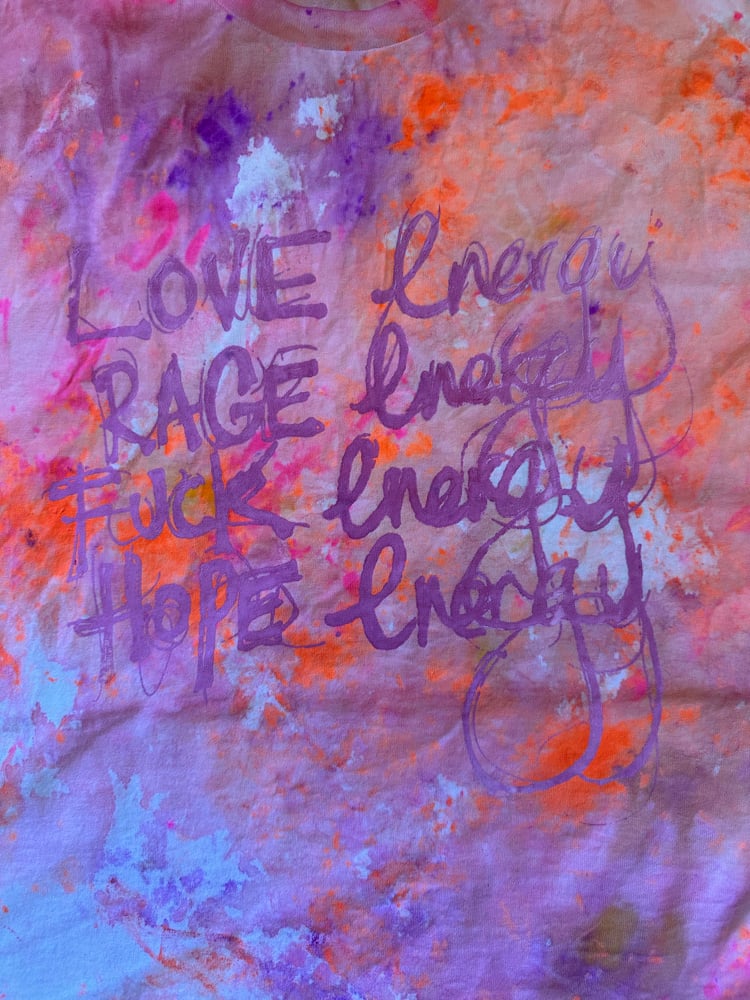 LOVE energy
RAGE energy
FUCK energy
HOPE energy